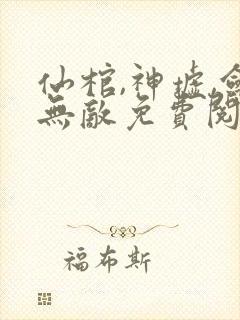 仙棺,神墟,
無敵免費閱
福布斯